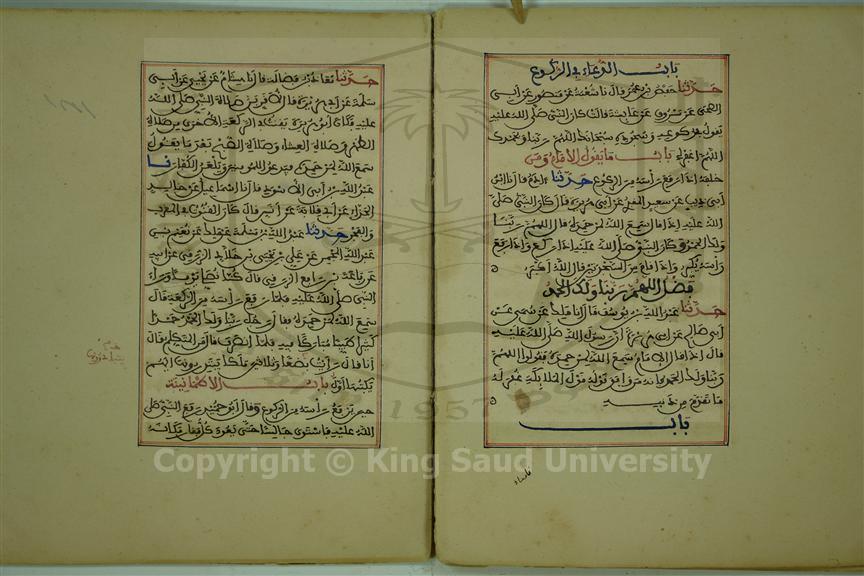 باب الدعاء في الركوع
حدثنا حفص بن عمر قال نا شعبة عن منصور عن أبي
الضحى عن مسروق عن عايشة قالت كان النبي صلى الله عليه
يقول في ركوعه وسجوده سبحانك اللهم ربنا وبحمدك
اللهم اغفر لي باب ما يقول الإمام ومن
خلفه إذا رفع رأسه من الركوع حدثنا آدم قال نا ابن
أبي ذيب عن سعيد المقبري عن أبي هريرة قال كان النبي صلى
الله عليه إذا قال سمع الله لمن حمده قال اللهم ربنا
ولك الحمد وكان النبي صلى الله عليه إذا ركع وإذا رفع
رأسه يكبر وإذا قام من السجدتين قال الله أكبر
فضل اللهم ربنا ولك الحمد
حدثنا عبد الله بن يوسف قال أنا ملك عن سمي عن
أبي صالح عن أبي هريرة أن رسول الله صلى الله عليه
قال إذا قال الإمام سمع الله لمن حمده فقولوا اللهم
ربنا ولك الحمد فإنه من وافق قوله قول الملايكة غفر له
ما تقدم من ذنبه
باب
حدثنا معاذ بن فضالة قال نا هشام عن يحيى عن أبي
سلمة عن أبي هريرة قال لأقربن صلاة النبي صلى الله
عليه فكان أبو هريرة يقنت في الركعة الأخرى من صلاة
الظهر وصلاة العشاء وصلاة الصبح بعد ما يقول
سمع الله لمن حمده فيدعو للمومنين ويلعن الكفار نا
عبد الله بن أبي الأسود قال نا إسماعيل عن خالد
الحذاء عن أبي قلابة عن أنس قال كان القنوت في المغرب
والفجر حدثنا عبد الله بن مسلمة عن ملك عن نعيم بن
عبد الله المجمر عن علي بن يحيى بن خلاد الزرقي عن أبيه
عن رفاعة بن رافع الزرقي قال كنا نصلي يوما وراء
النبي صلى الله عليه فلما رفع رأسه من الركعة قال
سمع الله لمن حمده قال رجل ربنا ولك الحمد حمدا
كثيرا طيبا مباركا فيه فلما انصرف قال من المتكلم قال
أنا قال رأيت بضعة وثلاثين ملكا يبتدرونها أيهم
يكتبها أول باب الاطمأنينة
حين يرفع رأسه من الركوع وقال أبو حميد رفع النبي صلى
الله عليه فاستوى جالسا حتى يعود كل فقار مكانه
Copyright © King Saud University
1957